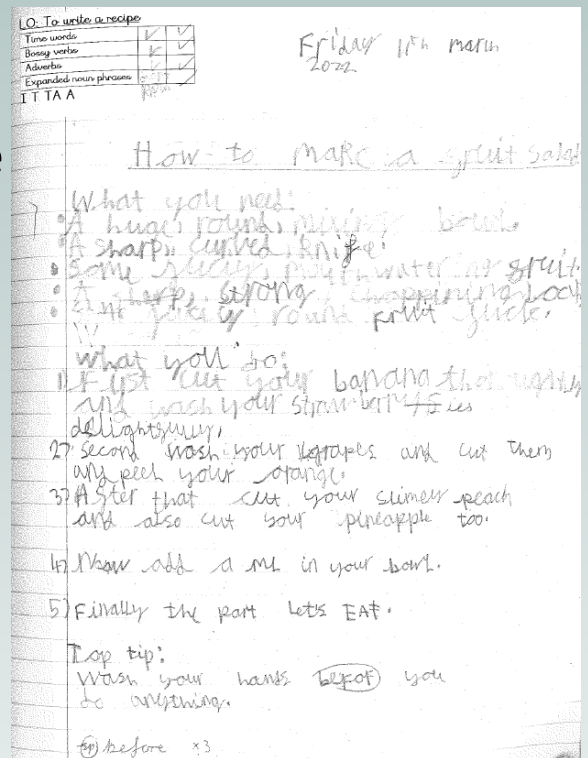 LO: To write a recipe
Time words
Bossy verbs
Adverbs
Expanded noun phrases
I T TA A
Friday 11th march
2022
How to make a fruit salad
What you need:
A huge, round, mixing bowl.
A sharp, curved, knife.
Some juicy, mouthwatering fruit.
A sharp, strong,
round fruit juice.
What you do:
1) First cut your banana
and wash your strawberries
2) Second wash your grapes and cut them
any peel your orange.
3) After that cut your slimey peach
and also cut your pineapple too.
4) Now add a ml in your bowl.
5) Finally the part let's EAT.
Top tip:
Wash your hands befor you
do anything.
sp before x3